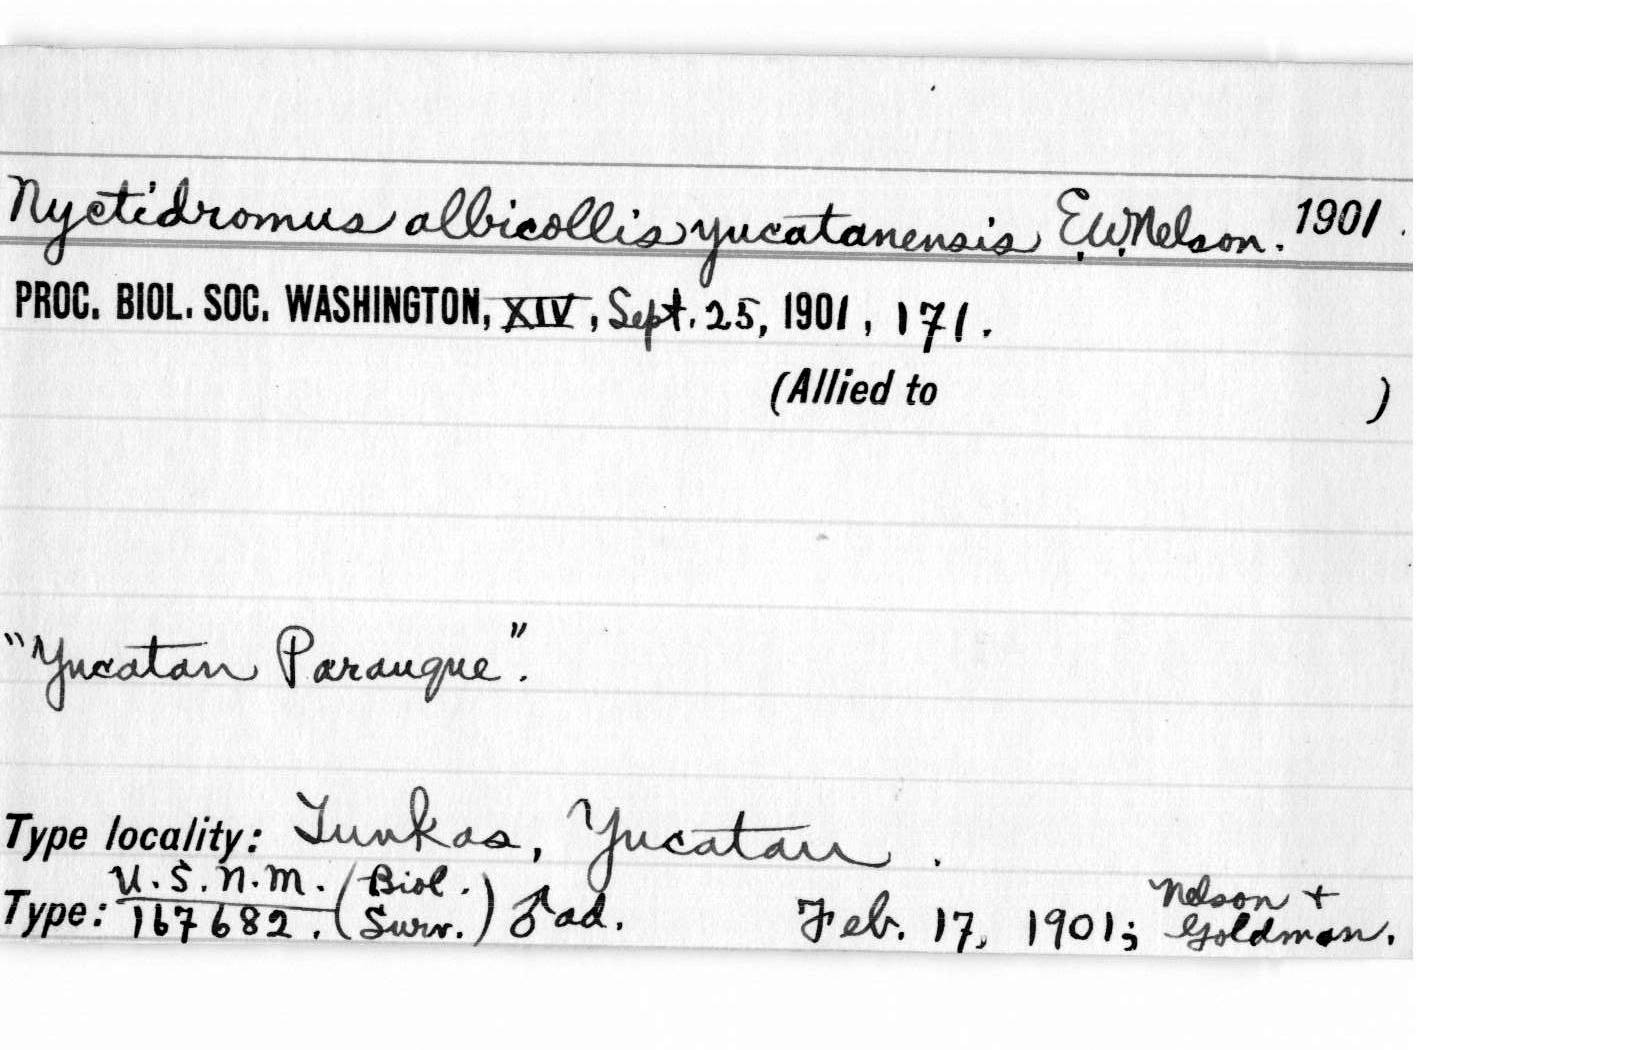 Nyctidromus albicollis yucatanensis E.W. Nelson. 1901.
PROC. BIOL. SOC. WASHINGTON, XIV, Sept. 25, 1901, 171.
(Allied to )
"Yucatan Parauque".
Type locality: Tunkas, Yucatan.
Type: U.S.N.M. 167682. (Biol. Surv.) ♂ ad. Feb. 17, 1901; Nelson + Goldman.